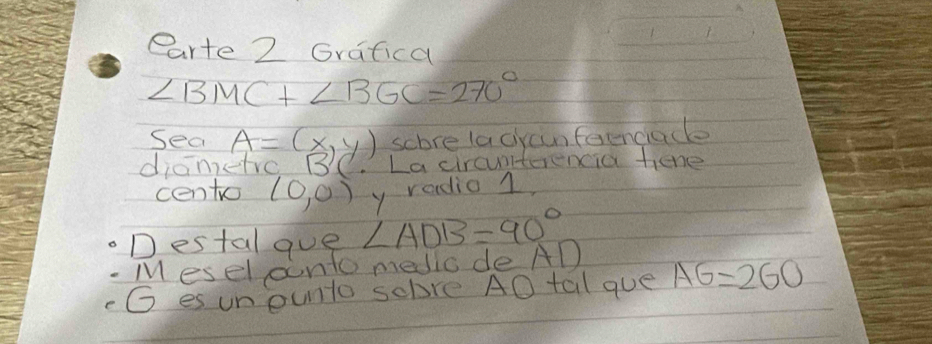 Parte 2 Gráfica
∠BMC + ∠BGC = 270°
Sea A = (x, y) sobre la circunferencia de
diámetro BC. La circunferencia tiene
centro (0,0) y radio 1.
• D es tal que ∠ADB = 90°
• M es el punto medio de AD
• G es un punto sobre AO tal que AG = 2GO